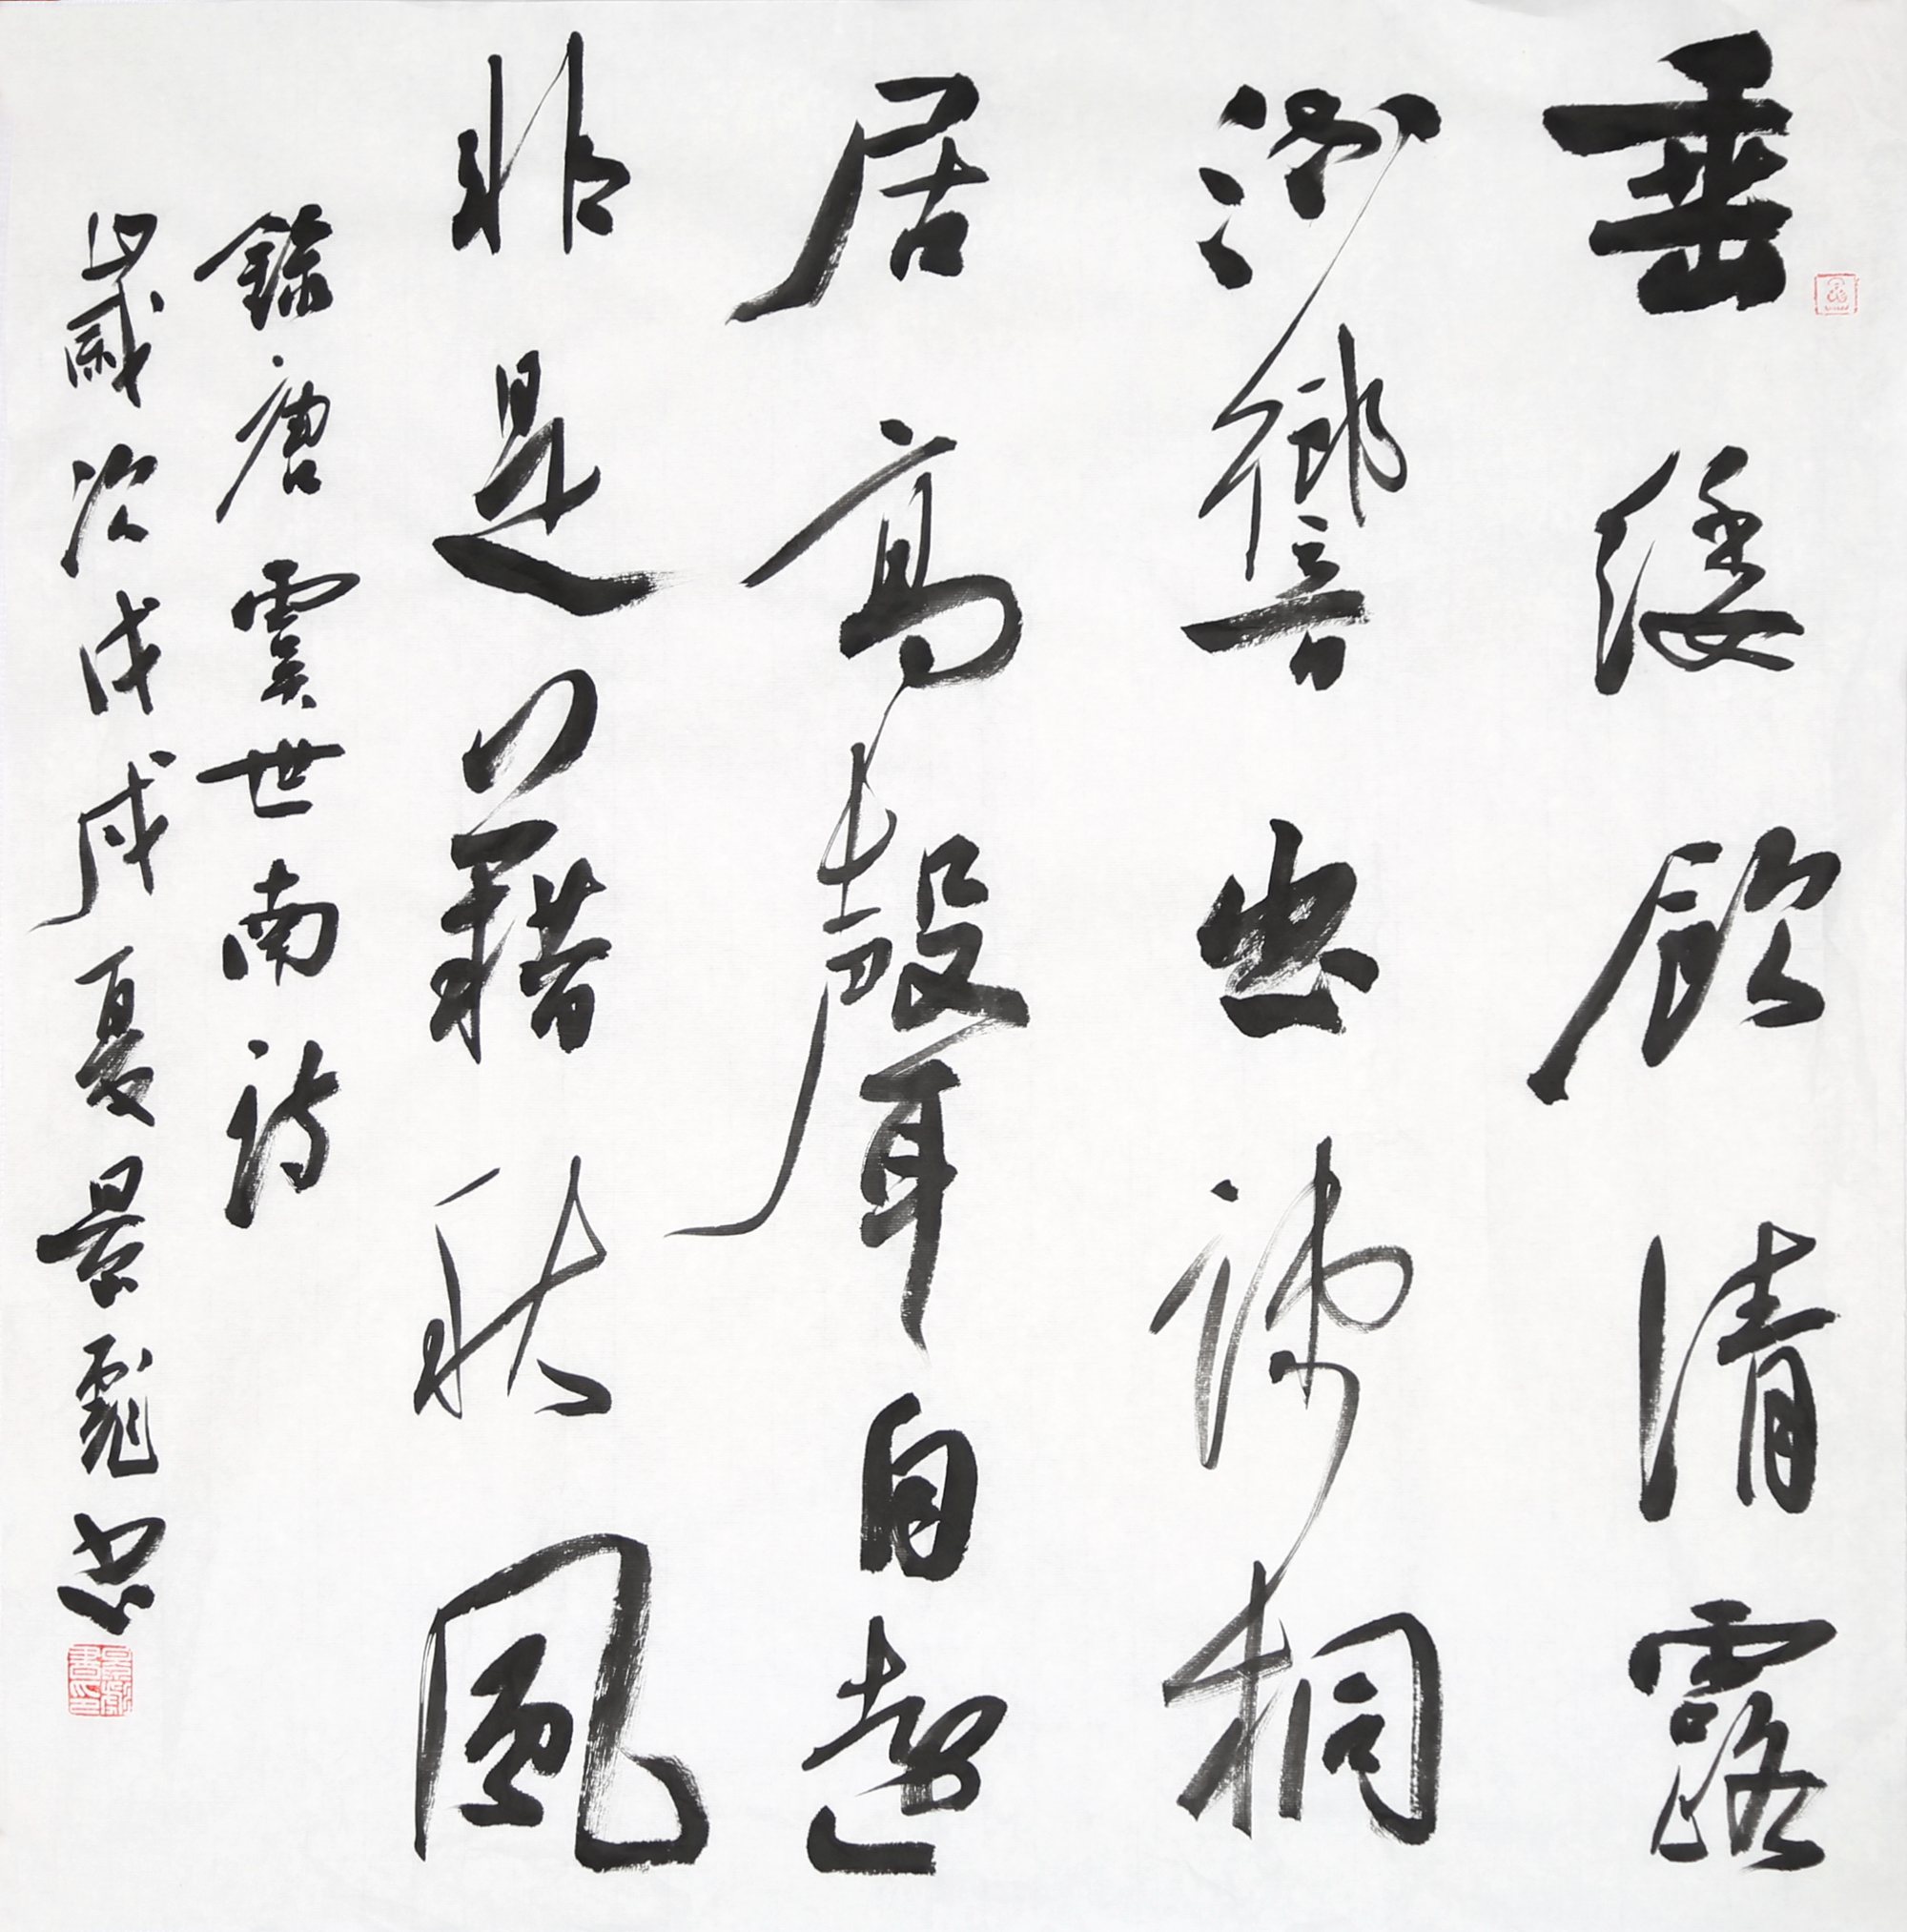 垂緌飲清露
流響出疎桐
居高聲自遠
非是藉秋風
錄唐虞世南詩
歲次戊戌夏景彪書